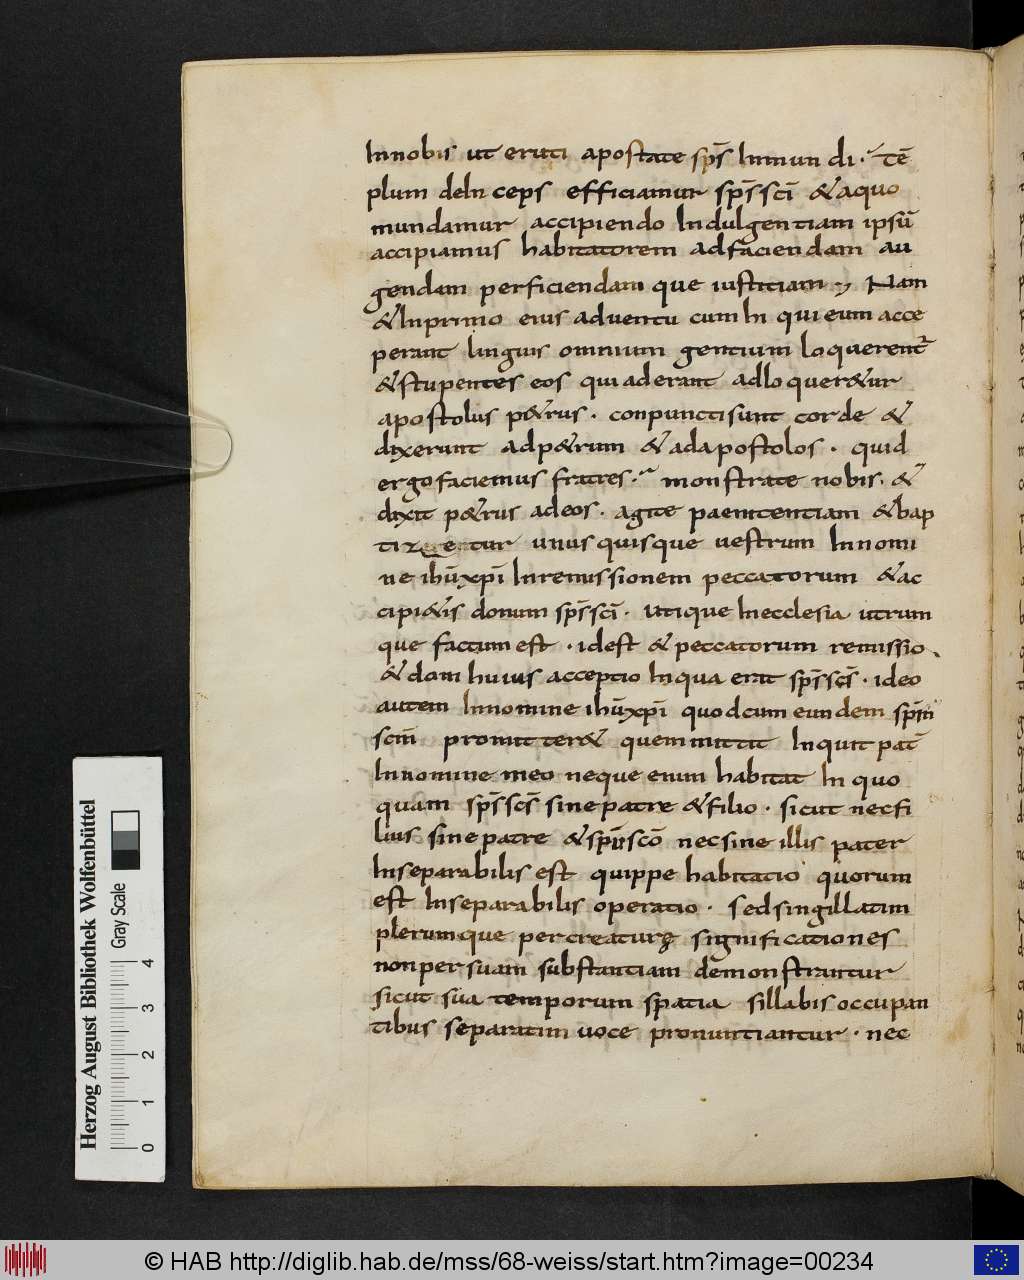 Innobis ut eruti apostate sp̄s Inmun di · tē
plum deIn ceps efficiamur sp̄s sc̄i &aquo
mundamur accipiendo Indulgentiam ipsū
accipiamus habitatorem adfaciendam au
gendam perficiendam que iustitiam Nam
&Inprimo eius aduentu cum In qui eum acce
perant linguis omnium gentium loquerent̄
&stupentes eos qui aderant adlo quer&ur
apostolus p&rus · conpuncti sunt corde &
dixerunt adp&rum &adapostolos · quid
ergo faciemus fratres · monstrate nobis · &
dixit p&rus adeos · agite paenitentiam &bap
tiz& tur unus quisque uestrum Innomi
ne ihū xp̄i Inremissionem peccatorum &ac
cipi&is donum sp̄s sc̄i · utique Inecclesia utrum
que factum est · idest &peccatorum remissio
&doni huius acceptio Inqua erat sp̄s sc̄s · ideo
autem Innomine ihū xp̄i quod cum eun dem sp̄m
sc̄m promit ter& quem mittit Inquit pat̄
Innomine meo neque enim habitat In quo
quam sp̄s sc̄s sine patre &filio · sicut necfi
lius sine patre &sp̄u sc̄o nec sine illis pater
Inseparabilis est quippe habitatio quorum
est Inseparabilis operatio · sed singillatim
plerumque per creaturę significationes
non per suam substantiam demonstrantur
sicut sua temporum spatia sillabis occupan
tibus separatim uoce pronuntiantur · nec
Herzog August Bibliothek Wolfenbüttel
Gray Scale
0 1 2 3 4
© HAB http://diglib.hab.de/mss/68-weiss/start.htm?image=00234